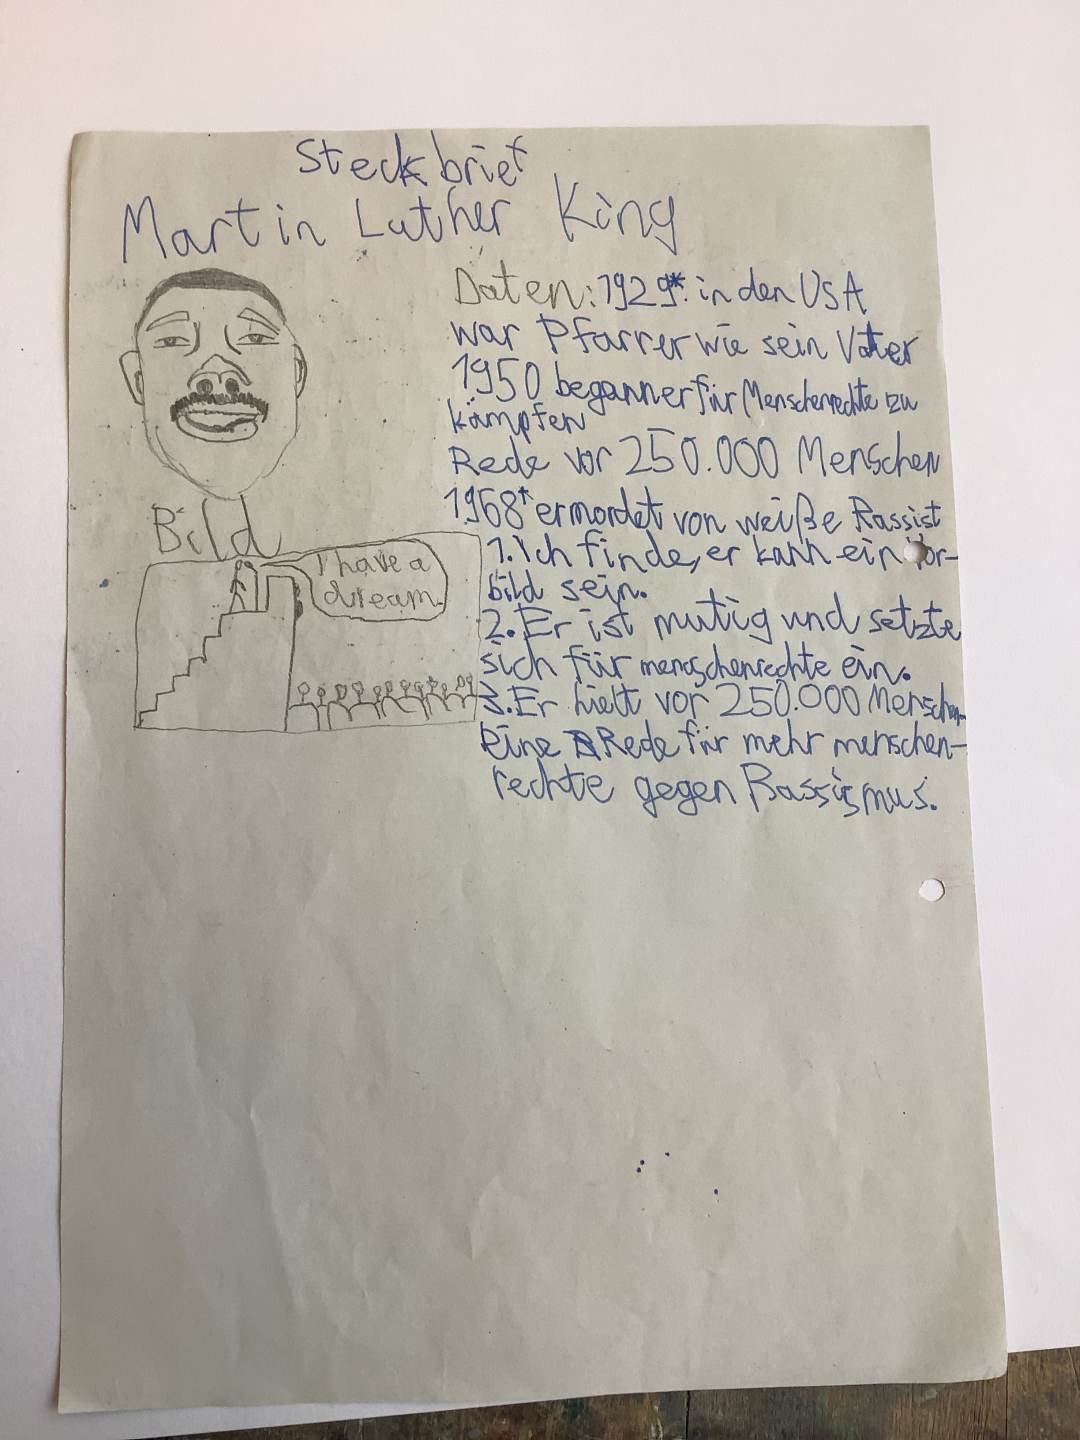 Steckbrief
Martin Luther King
Daten: 1929*. in den USA
war Pfarrer wie sein Vater
1950 begann er für Menschenrechte zu
kämpfen
Rede vor 250.000 Menschen
1968† ermordet von weiße Rassist
Bild
I have a
dream.
1. Ich finde, er kann ein Vor-
bild sein.
2. Er ist mutig und setzte
sich für menschenrechte ein.
3. Er hielt vor 250.000 Menschen
eine Rede für mehr menschen-
rechte gegen Rassismus.